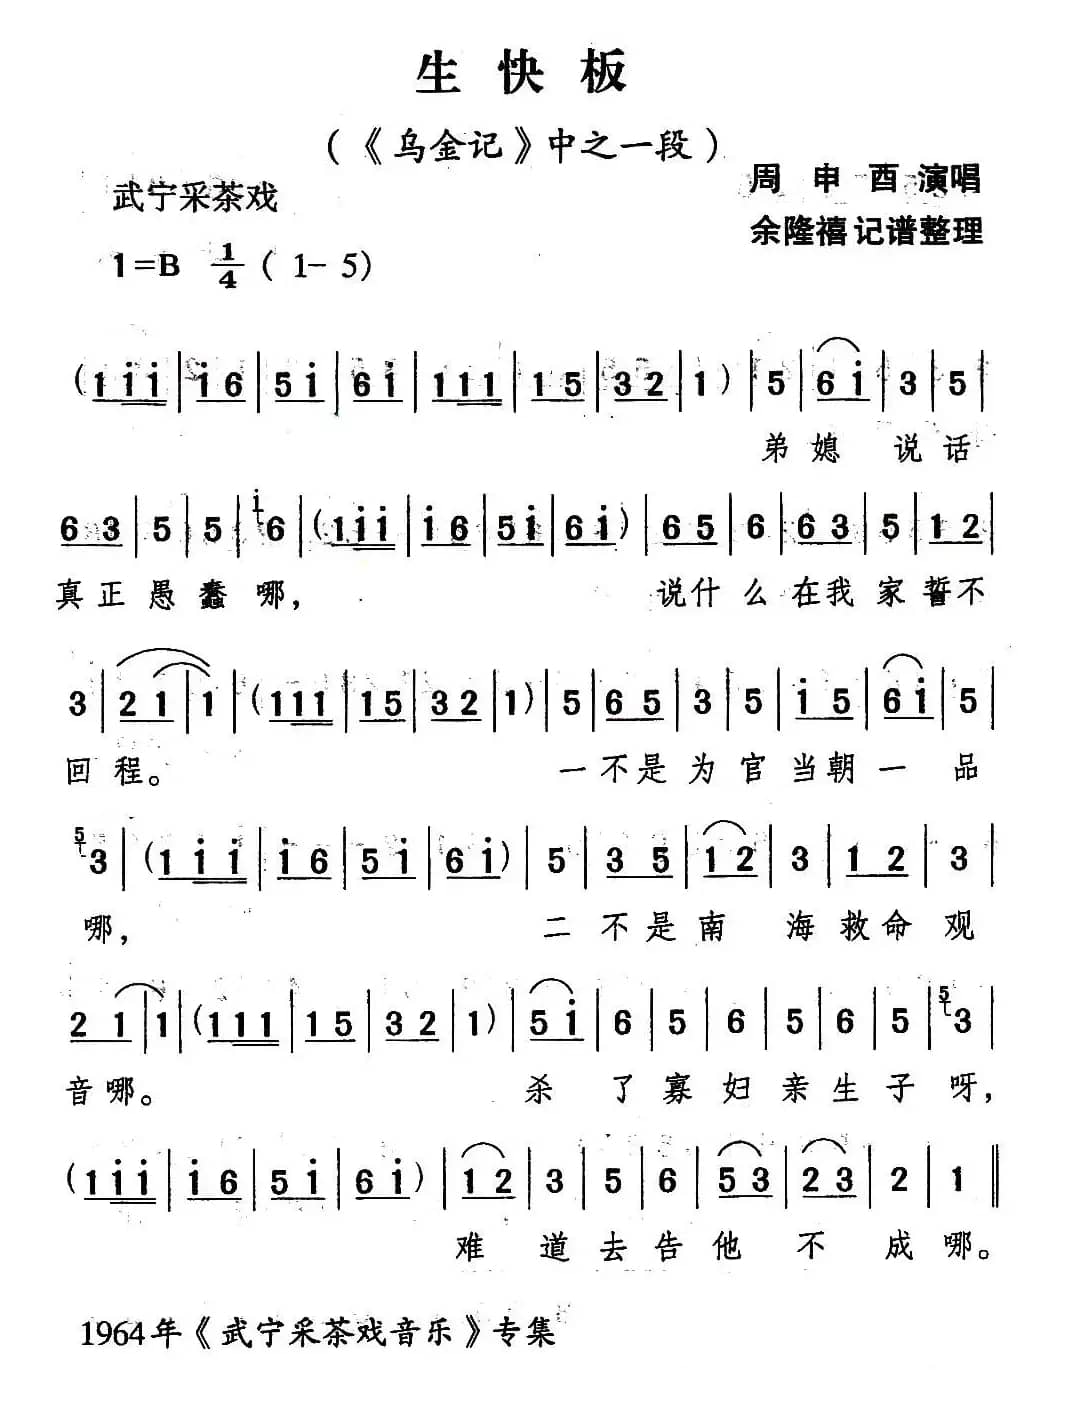 生快板
(《乌金记》中之一段)
武宁采茶戏
周申酉 演唱
余隆禧 记谱整理
1=B 1/4 ( 1- 5)
(1 i i | i 6 | 5 i | 6 i | 1 1 1 | 1 5 | 3 2 | 1 ) | 5 | 6 i | 3 | 5 |
弟 媳 说 话
6 3 | 5 | 5 | i 6 | (1 i i | i 6 | 5 i | 6 i ) | 6 5 | 6 | 6 3 | 5 | 1 2 |
真正愚蠢哪, 说什么在我家誓不
3 | 2 1 | 1 | (1 1 1 | 1 5 | 3 2 | 1) | 5 | 6 5 | 3 | 5 | i 5 | 6 i | 5 |
回程。 一不是为官当朝一品
5 3 | (1 i i | i 6 | 5 i | 6 i ) | 5 | 3 5 | 1 2 | 3 | 1 2 | 3 |
哪, 二不是南海救命观
2 1 | 1 | (1 1 1 | 1 5 | 3 2 | 1 ) | 5 i | 6 | 5 | 6 | 5 | 6 | 5 | 5 3 |
音哪。 杀了寡妇亲生子呀,
(1 i i | i 6 | 5 i | 6 i ) | 1 2 | 3 | 5 | 6 | 5 3 | 2 3 | 2 | 1 ||
难道去告他不成哪。
1964年《武宁采茶戏音乐》专集